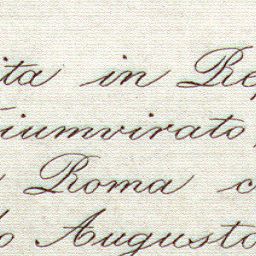 ita in Re
iumvirato,
Roma c
o Augusto